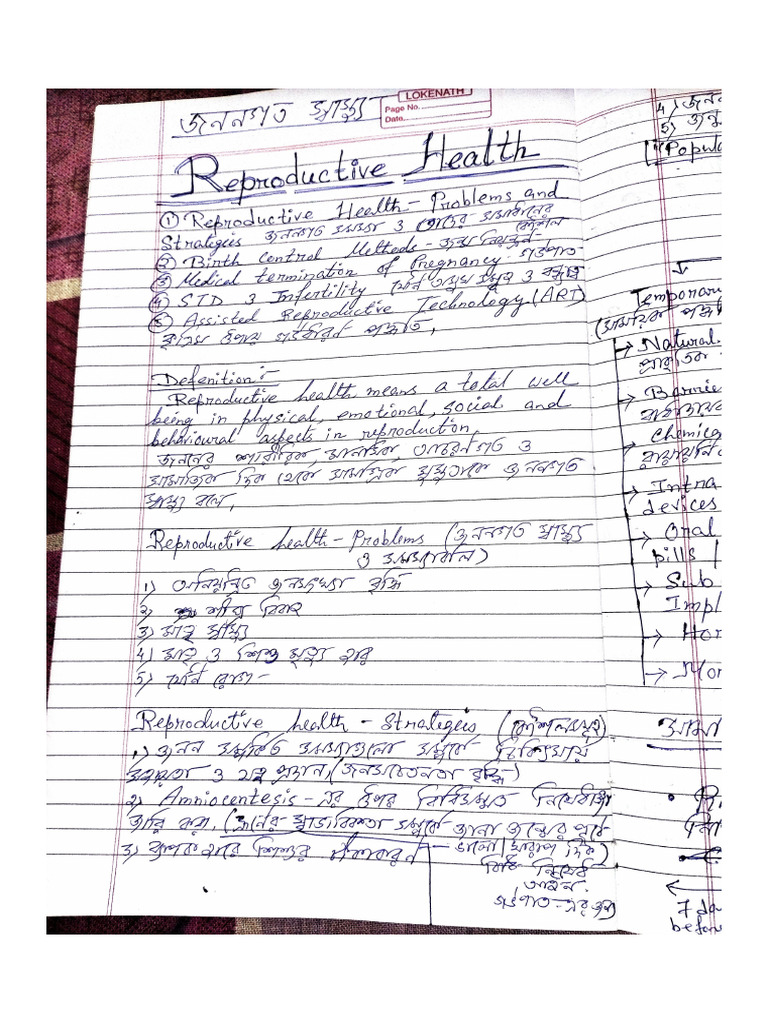 LOKENATH
Page No.
Date.
জননগত স্বাস্থ্য
Reproductive Health
① Reproductive Health - Problems and
Strategies জননগত সমস্যা ও তাদের সমাধানের কৌশল
② Birth Central Methods - জন্ম নিয়ন্ত্রন
③ Medical termination of Pregnancy - গর্ভপাত
④ STD ও Infertility যৌন ও বন্ধ্যাত্ব
⑤ Assisted Reproductive Technology (ART)
পদ্ধতি,
Defenition :-
Reproductive health means a total well
being in physical, emotional, social and
behavioural aspects in reproduction,
জননের শারীরিক, মানসিক, আচরনগত ও
সামাজিক দিক থেকে সামগ্রিক সুস্থতাকে জননগত
স্বাস্থ্য বলে,
Reproductive health - Problems (জননগত স্বাস্থ্য
ও সমস্যাবলি)
1) অনিয়ন্ত্রিত জনসংখ্যা বৃদ্ধি
2) শীঘ্র বিবাহ
3) মাতৃ স্বাস্থ্য
4) মাতৃ ও শিশু মৃত্যু হার
5) যৌন রোগ -
Reproductive health - Strategies (কৌশলসমূহ)
1) জনন সম্পর্কিত সম্পর্কে চিকিৎসায়
ও যত্ন প্রদান, (জনসচেতনতা বৃদ্ধি)
2) Amniocentesis - এর উপর বিধিসম্মত নিষেধাজ্ঞা
জারি করা, (ভ্রূনের স্বাভাবিকতা সম্পর্কে জানা জন্মের পূর্বে
ভালো / খারাপ দিক)
3) ব্যাপক হারে শিশুদের টীকাকরন
বিধি নিষেধ
আইন.
গর্ভপাত - এর জন্য
4) জন
5) জন্ম
Popula
Temporary
(সাময়িক পদ্ধতি
→ Natural
প্রাকৃতিক
→ Barrie
→ Chemica
রাসায়নি
→ Intra
devices
→ Oral
pills |
→ Sub
Impl
→ Hor
→ Mor
7 da
befor